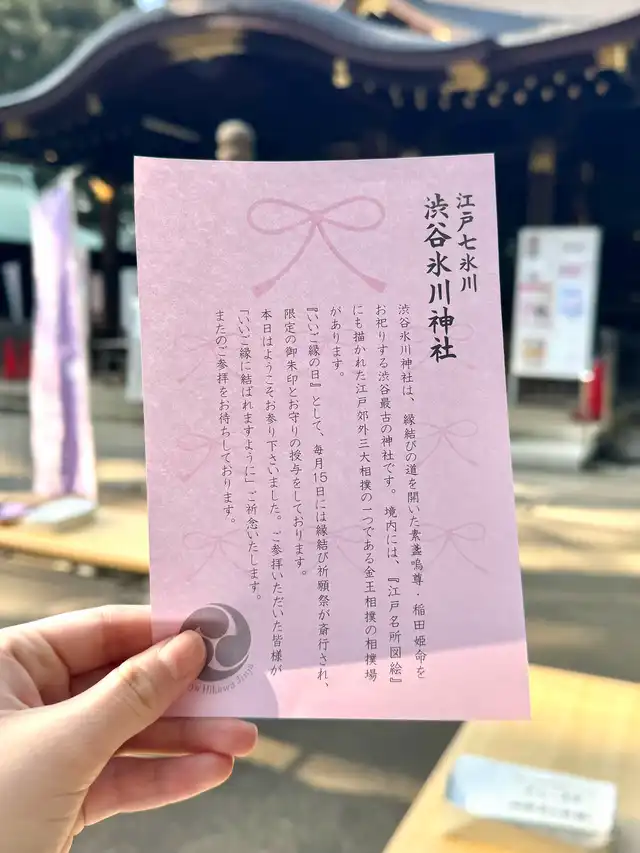 江戸七氷川
渋谷氷川神社
渋谷氷川神社は、縁結びの道を開いた素盞嗚尊・稲田姫命を
お祀りする渋谷最古の神社です。境内には、『江戸名所図絵』
にも描かれた江戸郊外三大相撲の一つである金王相撲の相撲場
があります。
『いいご縁の日』として、毎月15日には縁結び祈願祭が斎行され、
限定の御朱印とお守りの授与をしております。
本日はようこそお参り下さいました。ご参拝いただいた皆様が
「いいご縁に結ばれますように」ご祈念いたします。
またのご参拝をお待ちしております。
Hikawa Jinja